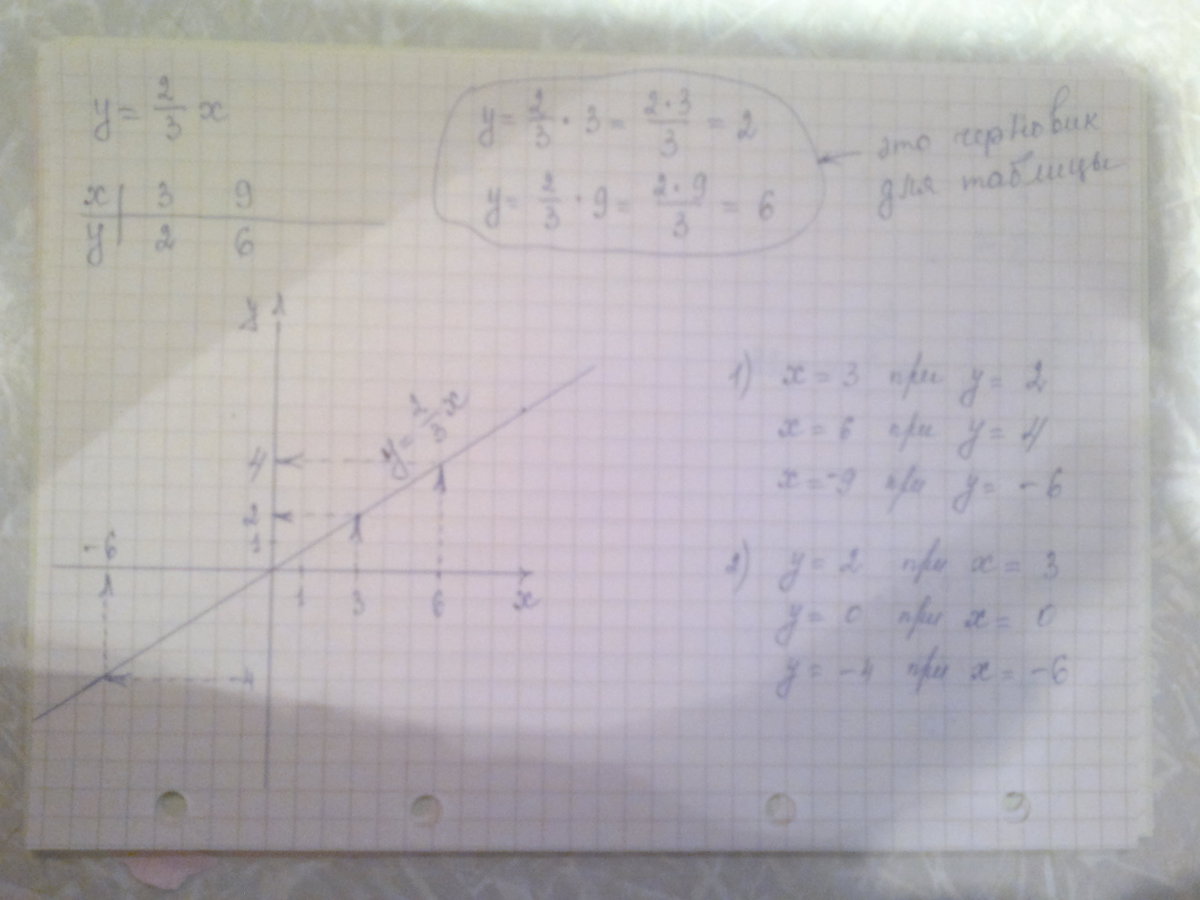 y = 2/3 x
x | 3 9
y | 2 6
y = 2/3 · 3 = 2·3/3 = 2
y = 2/3 · 9 = 2·9/3 = 6
это черновик
для таблицы
y
y = 2/3 x
4
2
1
-6
1 3 6 x
-4
1) x = 3 при y = 2
x = 6 при y = 4
x = -9 при y = -6
2) y = 2 при x = 3
y = 0 при x = 0
y = -4 при x = -6